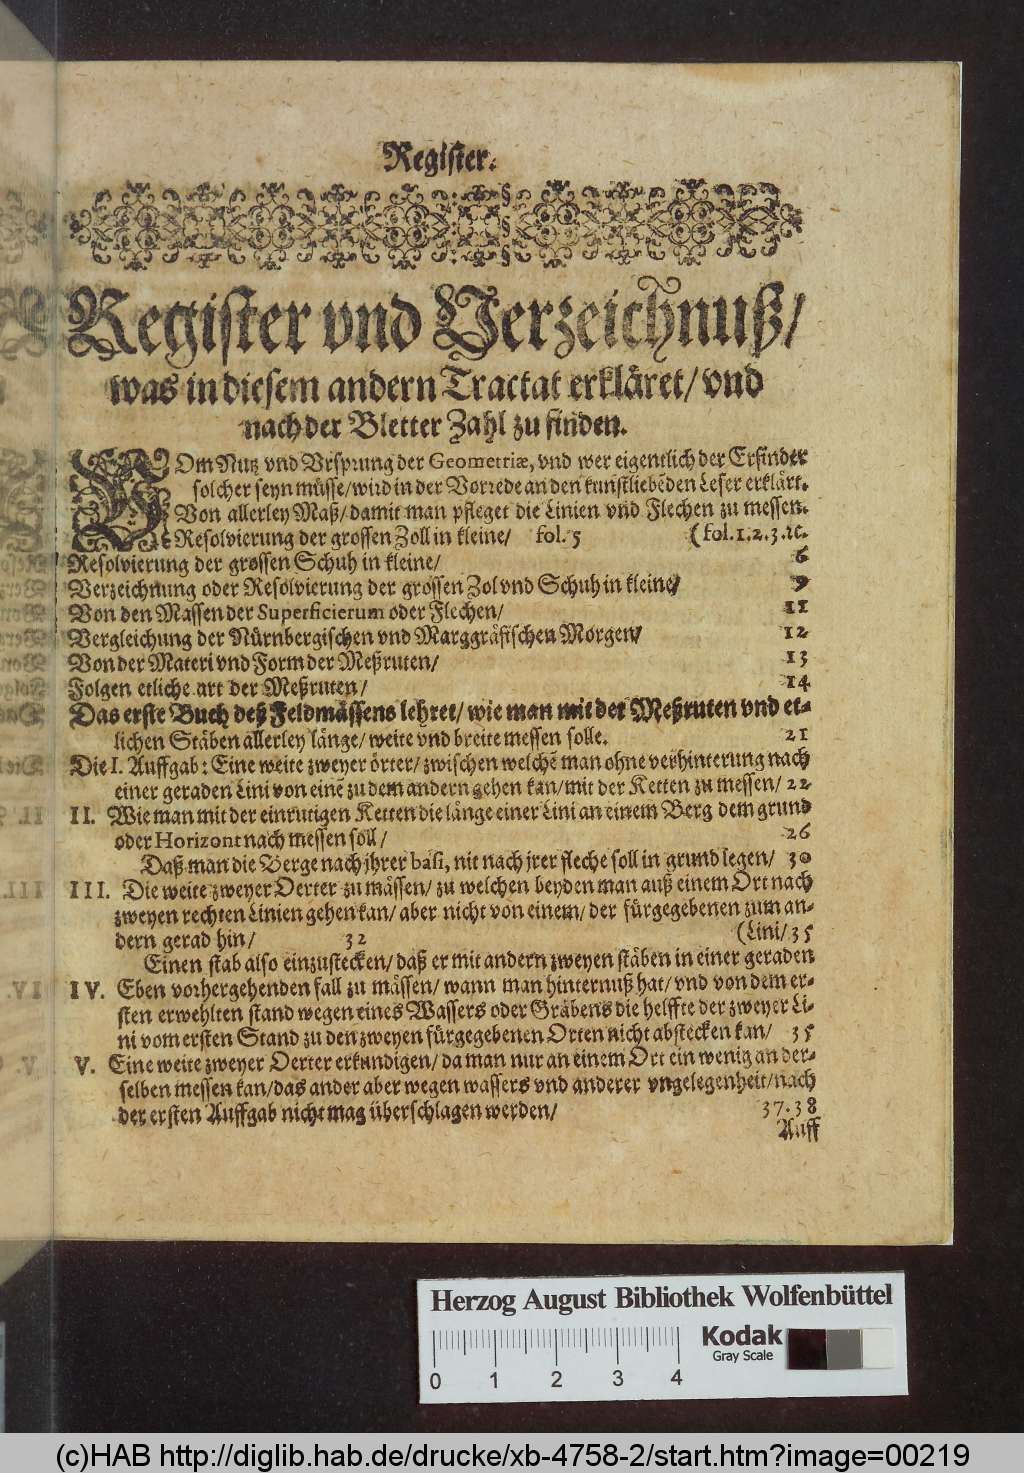 Register.
Register vnd Verzeichnuß/
was in diesem andern Tractat erkläret/ vnd
nach der Bletter Zahl zu finden.
VOm Nutz vnd Vrsprung der Geometriæ, vnd wer eigentlich der Erfinder
solcher seyn müsse/ wird in der Vorrede an den kunstliebēden Leser erklärt.
Von allerley Maß/ damit man pfleget die Linien vnd Flechen zu messen.
Resolvierung der grossen Zoll in kleine/ fol. 5 (fol. 1. 2. 3. ꝛc.
Resolvierung der grossen Schuh in kleine/ 6
Verzeichnung oder Resolvierung der grossen Zol vnd Schuh in kleine/ 9
Von den Massen der Superficierum oder Flechen/ 11
Vergleichung der Nürnbergischen vnd Marggräfischen Morgen/ 12
Von der Materi vnd Form der Meßruten/ 13
Folgen etliche art der Meßruten/ 14
Das erste Buch deß Feldmässens lehret/ wie man mit der Meßruten vnd et-
lichen Stäben allerley länge/ weite vnd breite messen solle. 21
Die I. Auffgab: Eine weite zweyer örter/ zwischen welchē man ohne verhinterung nach
einer geraden Lini von eine zu dem andern gehen kan/ mit der Ketten zu messen/ 22
II. Wie man mit der einrutigen Ketten die länge einer Lini an einem Berg dem grund
oder Horizont nach messen soll/ 26
Daß man die Berge nach jhrer basi, nit nach jrer fleche soll in grund legen/ 30
III. Die weite zweyer Oerter zu mässen/ zu welchen beyden man auß einem Ort nach
zweyen rechten Linien gehen kan/ aber nicht von einem/ der fürgegebenen zum an-
dern gerad hin/ 32 (Lini/ 35
Einen stab also einzustecken/ daß er mit andern zweyen stäben in einer geraden
IV. Eben vorhergehenden fall zu mässen/ wann man hinternuß hat/ vnd von dem er-
sten erwehlten stand wegen eines Wassers oder Gräbens die helffte der zweyer Li-
ni vom ersten Stand zu den zweyen fürgegebenen Orten nicht abstecken kan/ 35
V. Eine weite zweyer Oerter erkundigen/ da man nur an einem Ort ein wenig an der-
selben messen kan/ das ander aber wegen wassers vnd anderer vngelegenheit/ nach
der ersten Auffgab nicht mag überschlagen werden/ 37. 38
Auff
Herzog August Bibliothek Wolfenbüttel
Kodak
Gray Scale
0 1 2 3 4
(c)HAB http://diglib.hab.de/drucke/xb-4758-2/start.htm?image=00219